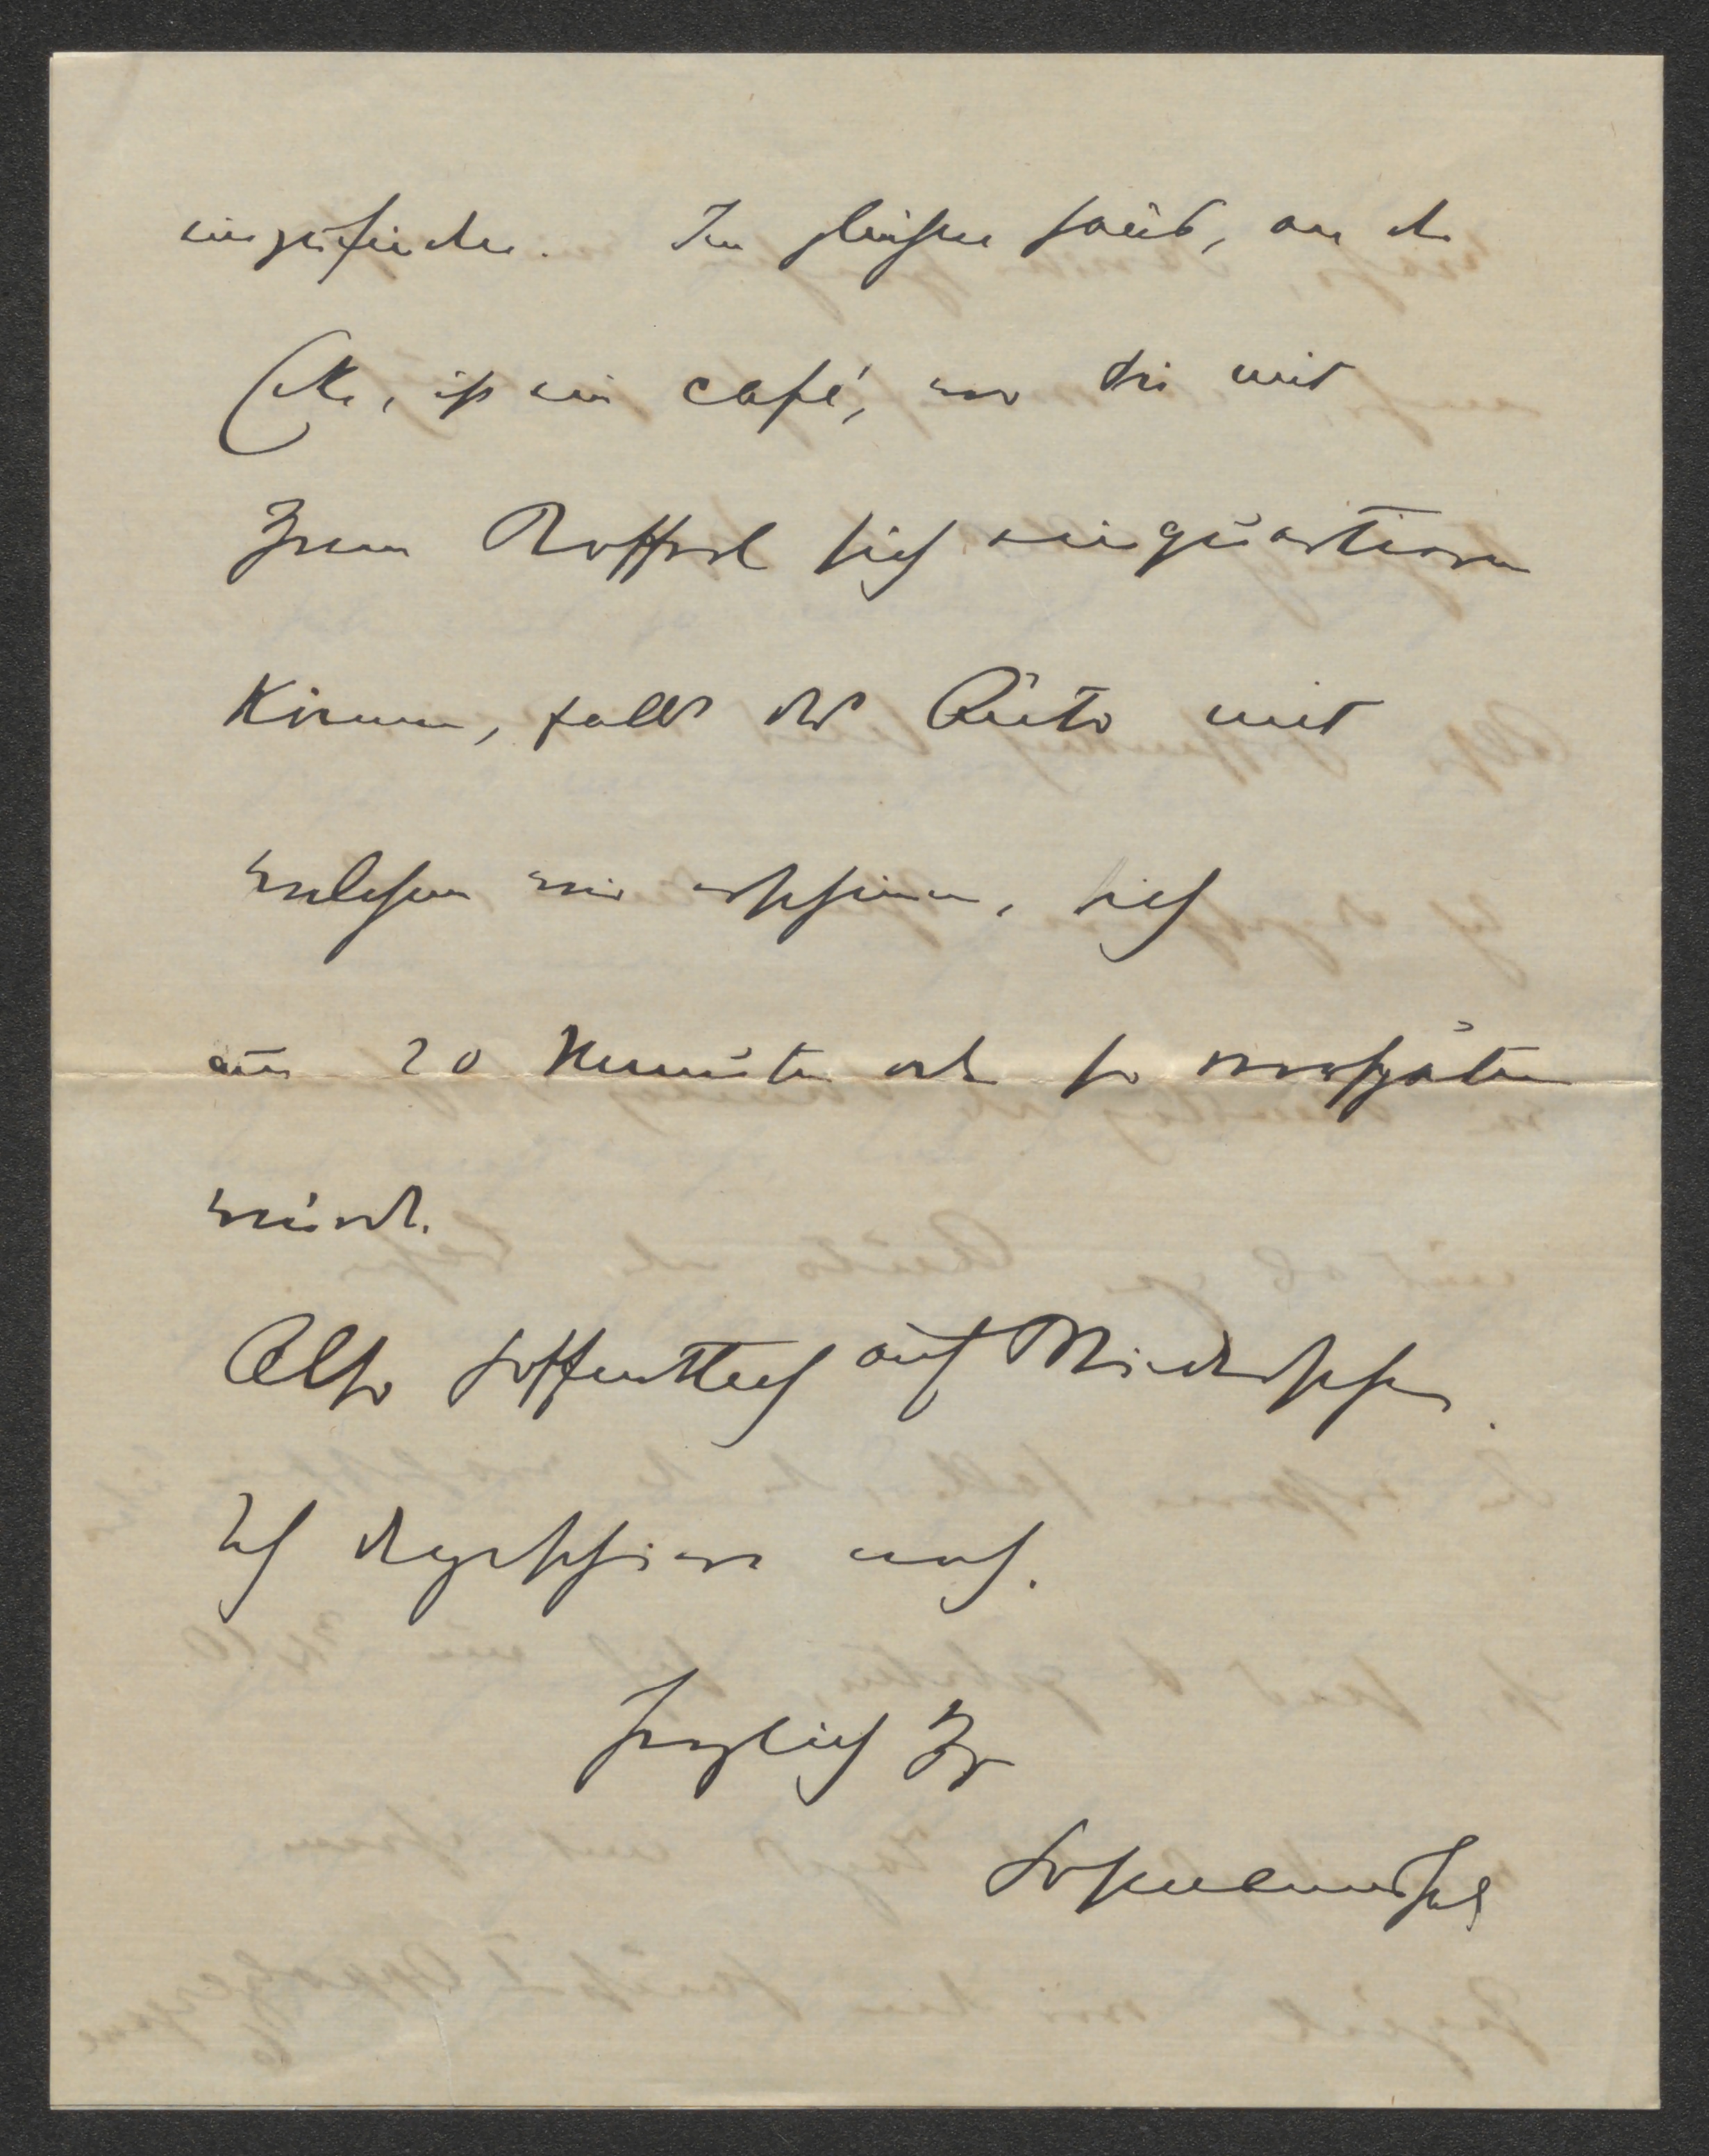 einzufinden. Im gleichen Haus, an der
Ecke, ist ein Café, wo Sie mit
Ihrem Kofferl sich einquartieren
können, falls das Auto mit
welchem wir erscheinen, sich
um 20 Minuten oder so verspäten
würde.
Also hoffentlich auf Wiedersehen.
Ich depeschiere noch.
Herzlich Ihr
Hofmannsthal